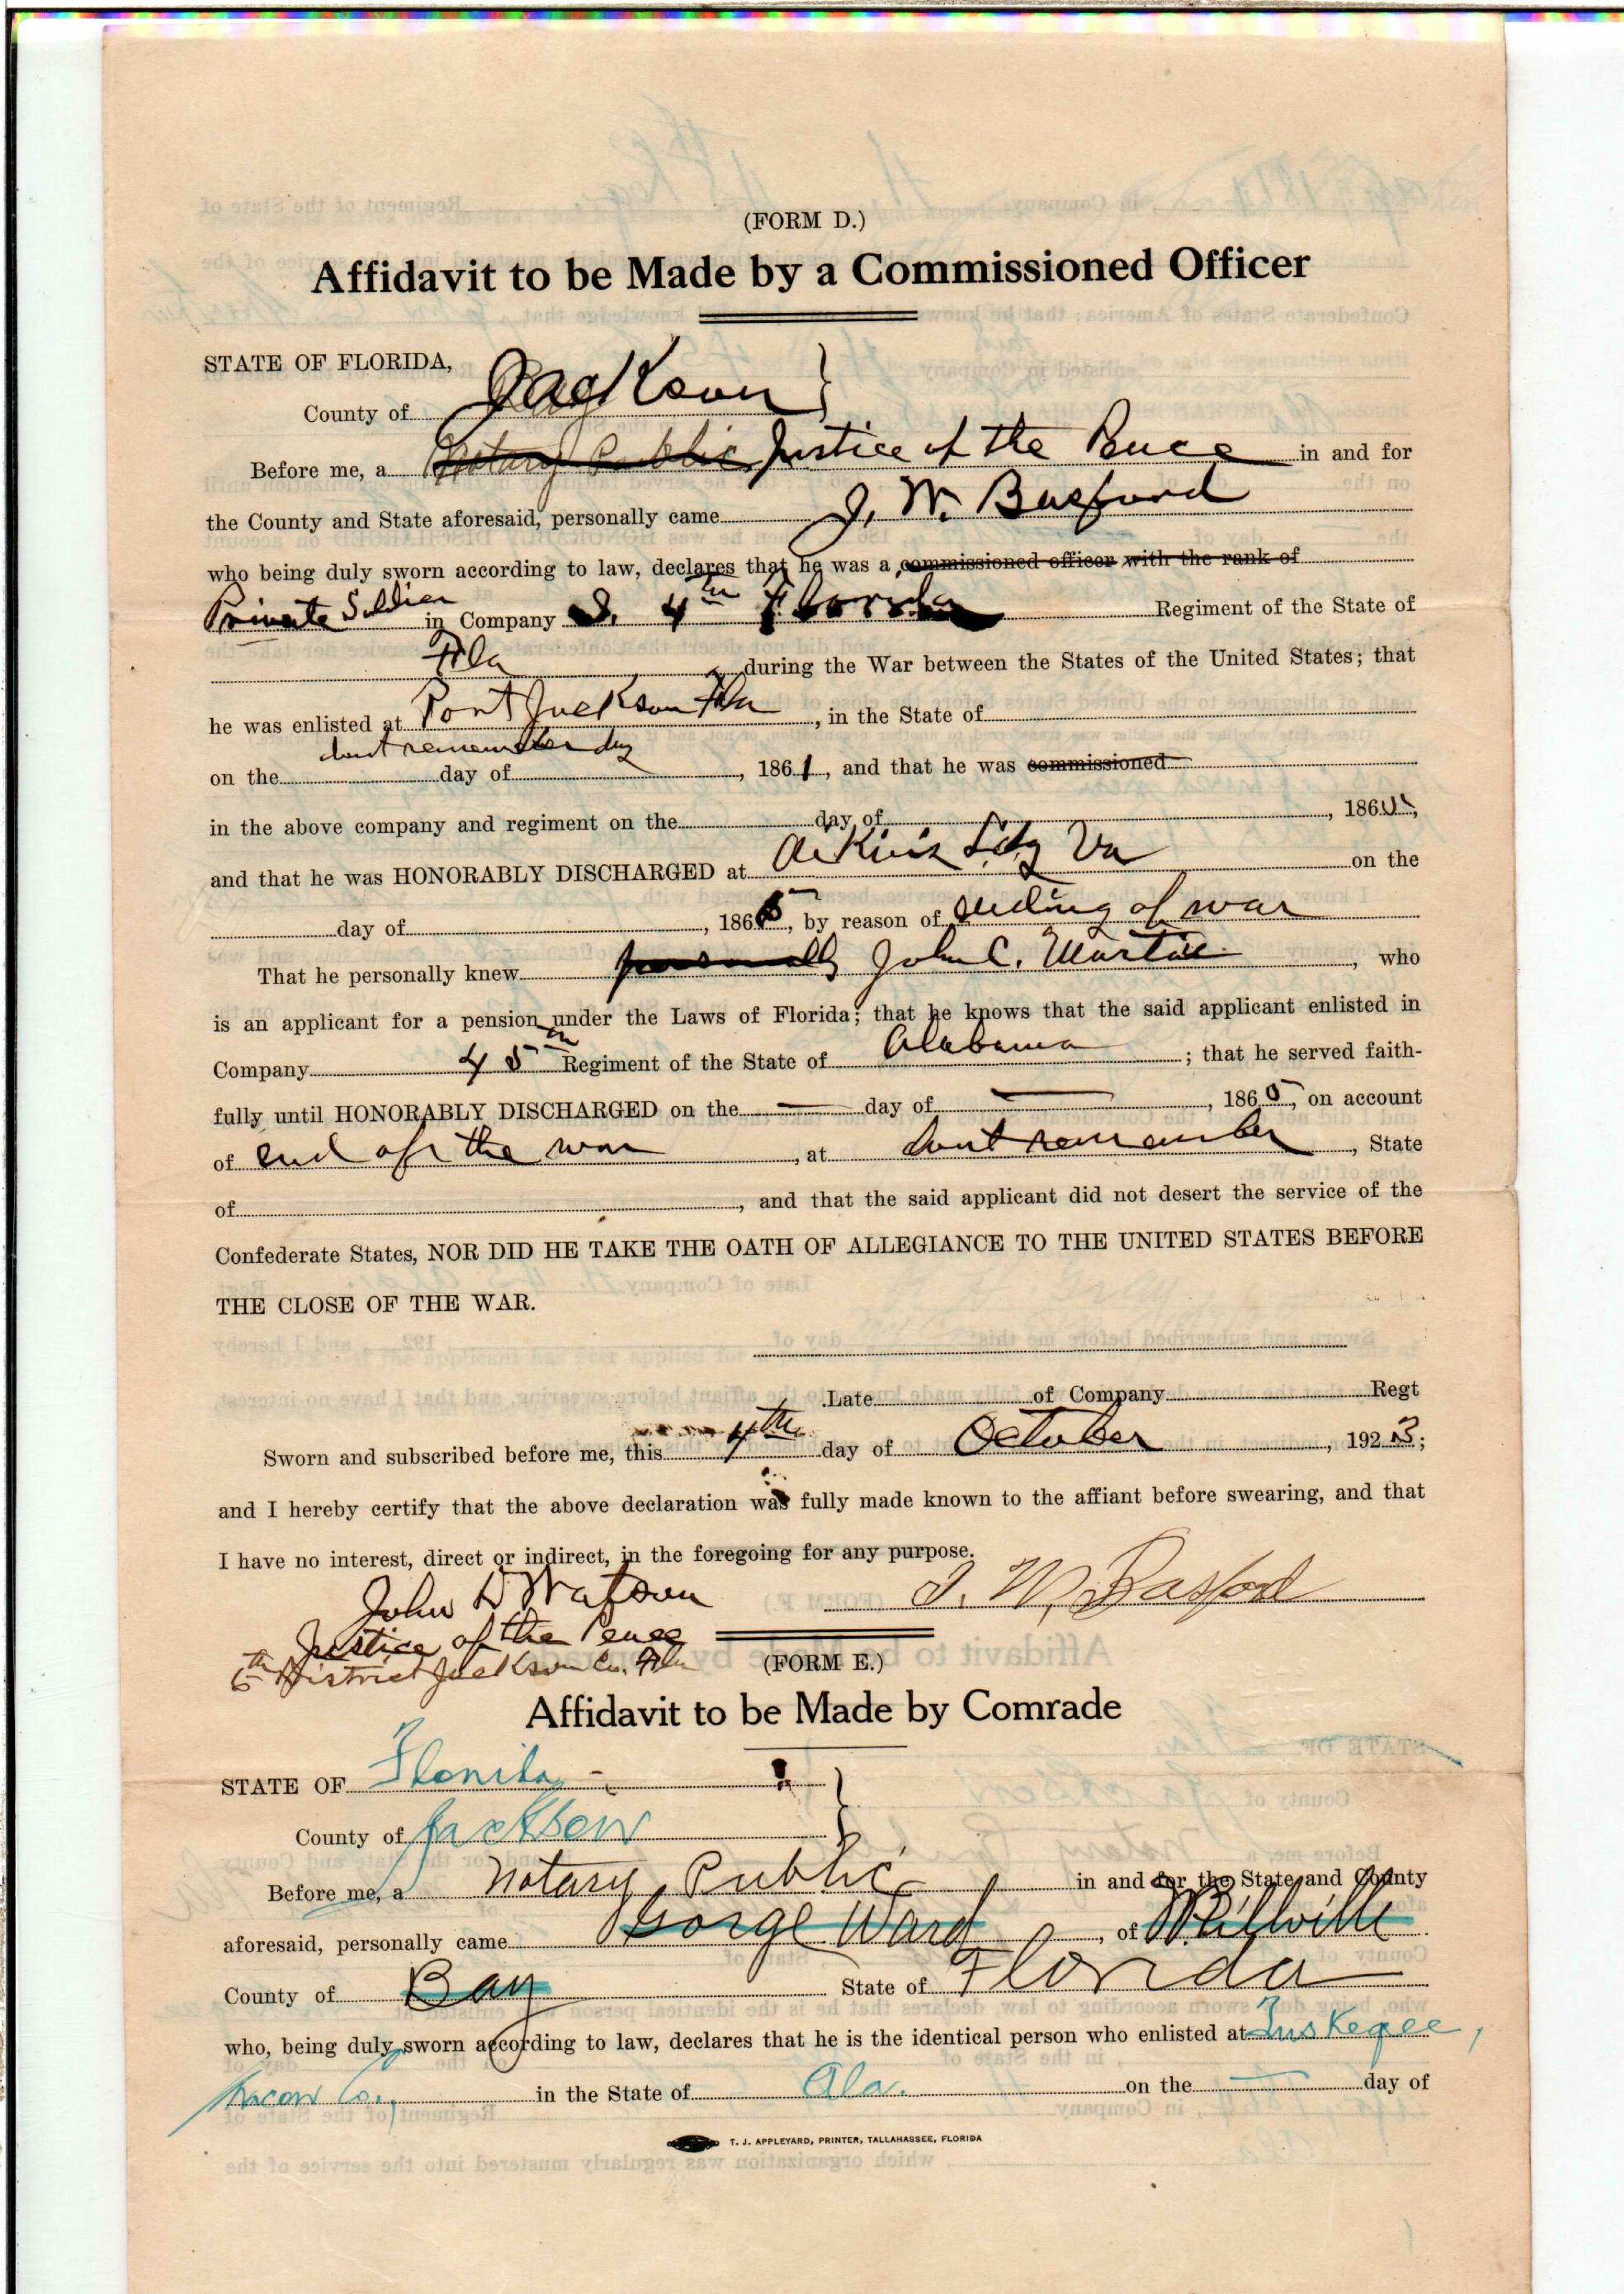 (FORM D.)
Affidavit to be Made by a Commissioned Officer
STATE OF FLORIDA,
County of Jackson }
Before me, a Notary Public Justice of the Peace in and for
the County and State aforesaid, personally came J. W. Basford
who being duly sworn according to law, declares that he was a commissioned officer with the rank of
Private Soldier in Company 4th Florida Regiment of the State of
Fla during the War between the States of the United States; that
he was enlisted at Port Jackson Fla, in the State of
on the dont remember day day of , 1861, and that he was commissioned
in the above company and regiment on the day of , 186
and that he was HONORABLY DISCHARGED at Va on the
day of , 1865, by reason of ending of war
That he personally knew personally John C. Martin, who
is an applicant for a pension under the Laws of Florida; that he knows that the said applicant enlisted in
Company 45th Regiment of the State of Alabama; that he served faith-
fully until HONORABLY DISCHARGED on the — day of —, 1865, on account
of end of the war, at dont remember, State
of , and that the said applicant did not desert the service of the
Confederate States, NOR DID HE TAKE THE OATH OF ALLEGIANCE TO THE UNITED STATES BEFORE
THE CLOSE OF THE WAR.
Late of Company Regt
Sworn and subscribed before me, this 4th day of October, 1923;
and I hereby certify that the above declaration was fully made known to the affiant before swearing, and that
I have no interest, direct or indirect, in the foregoing for any purpose.
John D Watson J. W. Basford
Justice of the Peace
6th District Jackson Co. Fla
(FORM E.)
Affidavit to be Made by Comrade
STATE OF Florida
County of Jackson }
Before me, a Notary Public in and for the State and County
aforesaid, personally came George Ward, of Millville
County of Bay State of Florida
who, being duly sworn according to law, declares that he is the identical person who enlisted at Tuskegee,
Macon Co., in the State of Ala. on the — day of
T. J. APPLEYARD, PRINTER, TALLAHASSEE, FLORIDA